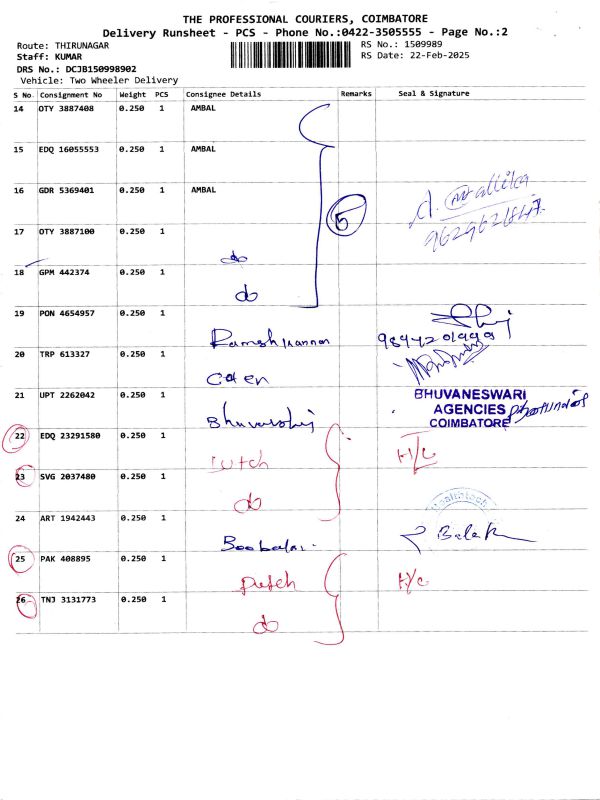 THE PROFESSIONAL COURIERS, COIMBATORE
Delivery Runsheet - PCS - Phone No.:0422-3505555 - Page No.:2
Route: THIRUNAGAR
RS No.: 1509989
Staff: KUMAR
RS Date: 22-Feb-2025
DRS No.: DCJB150998902
Vehicle: Two Wheeler Delivery
S No Consignment No Weight PCS Consignee Details Remarks Seal & Signature
14 OTY 3887408 0.250 1 AMBAL
15 EDQ 16055553 0.250 1 AMBAL
16 GDR 5369401 0.250 1 AMBAL
5
17 OTY 3887100 0.250 1
do
18 GPM 442374 0.250 1
do
19 PON 4654957 0.250 1
20 TRP 613327 0.250 1
21 UPT 2262042 0.250 1
BHUVANESWARI
AGENCIES
COIMBATORE
22 EDQ 23291580 0.250 1
H/C
23 SVG 2037480 0.250 1
do
24 ART 1942443 0.250 1
25 PAK 408895 0.250 1
H/C
26 TNJ 3131773 0.250 1
do